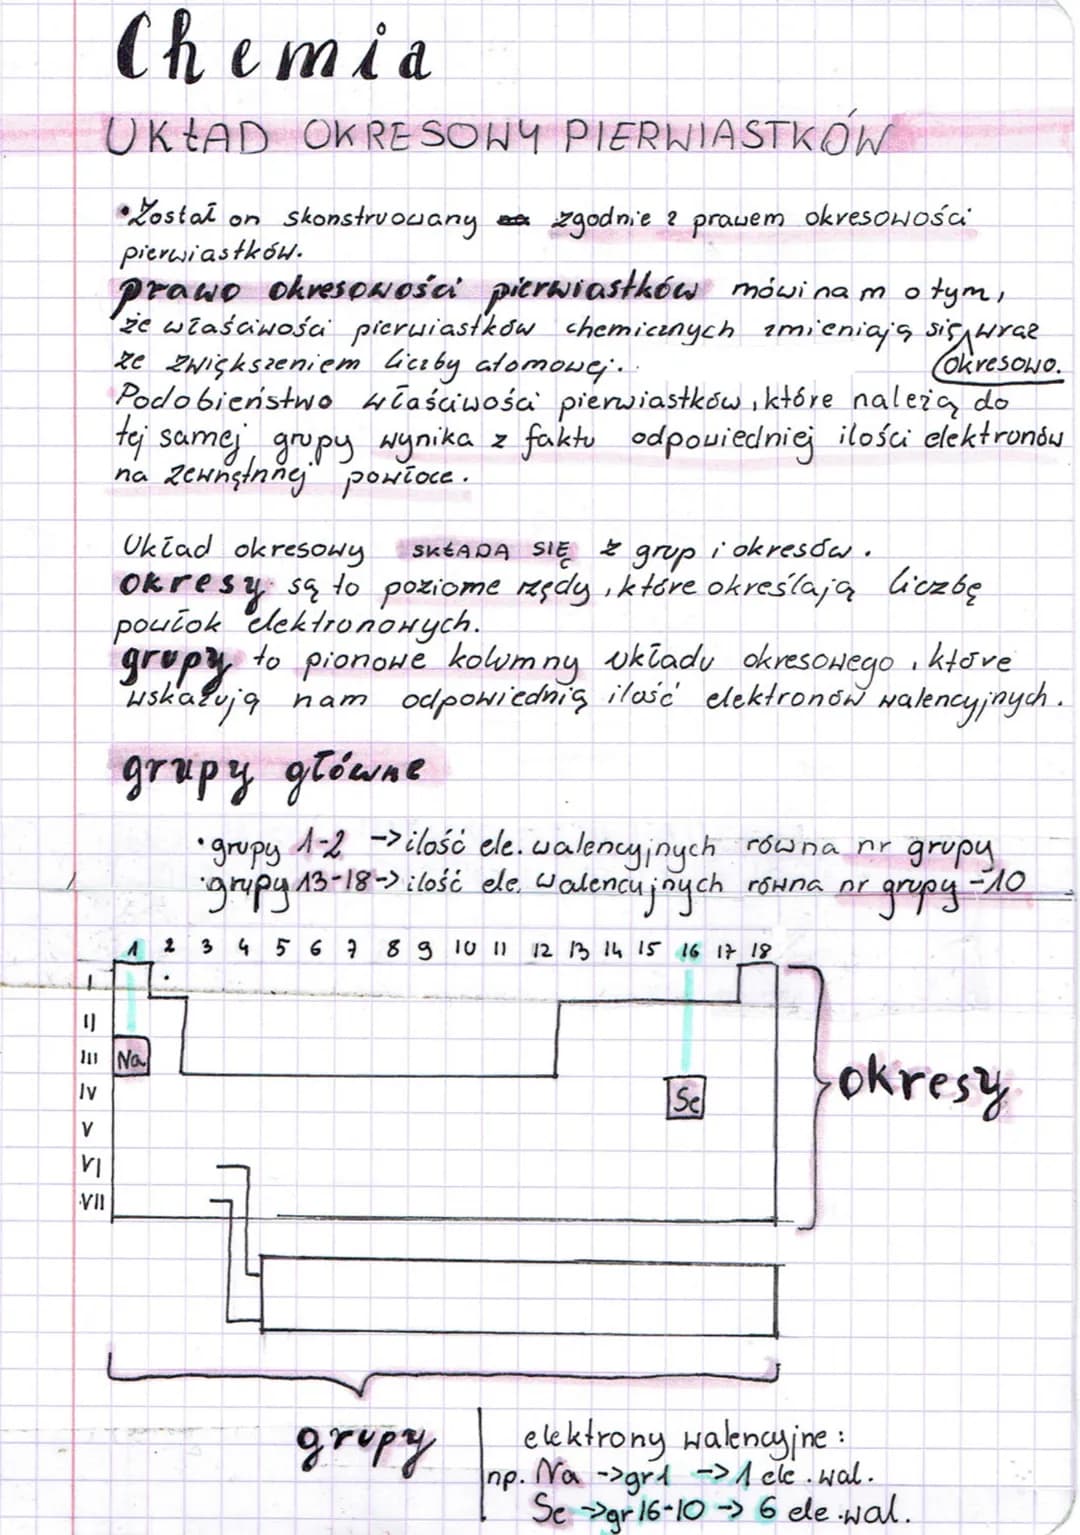 Chemia
UKŁAD OKRESOWY PIERWIASTKÓW
•Został on skonstruowany zgodnie z prawem okresowości
pierwiastków.
prawo okresowości pierwiastków mówi nam o tym,
że właściwości pierwiastków chemicznych zmieniają się wraz
ze zwiększeniem liczby atomowej.
okresowo.
Podobieństwo właściwości pierwiastków, które należą do
tej samej grupy wynika z faktu odpowiedniej ilości elektronów
na zewnętrznej powłoce.
Układ okresowy SKŁADA SIĘ z grup i okresów.
okresy są to poziome rzędy, które określają liczbę
powłok elektronowych.
grupy to pionowe kolumny układu okresowego, które
wskazują nam odpowiednią ilość elektronów walencyjnych.
grupy główne
•grupy 1-2 -> ilość ele. walencyjnych równa nr grupy
•grupy 13-18-> ilość ele. walencyjnych równa nr grupy -10
1 2 3 4 5 6 7 8 9 10 11 12 13 14 15 16 17 18
I
II
III Na
IV Se
V
VI
VII
okresy
grupy
elektrony walencyjne:
np. Na ->gr1 -> 1 ele. wal.
Se ->gr 16-10 -> 6 ele. wal.